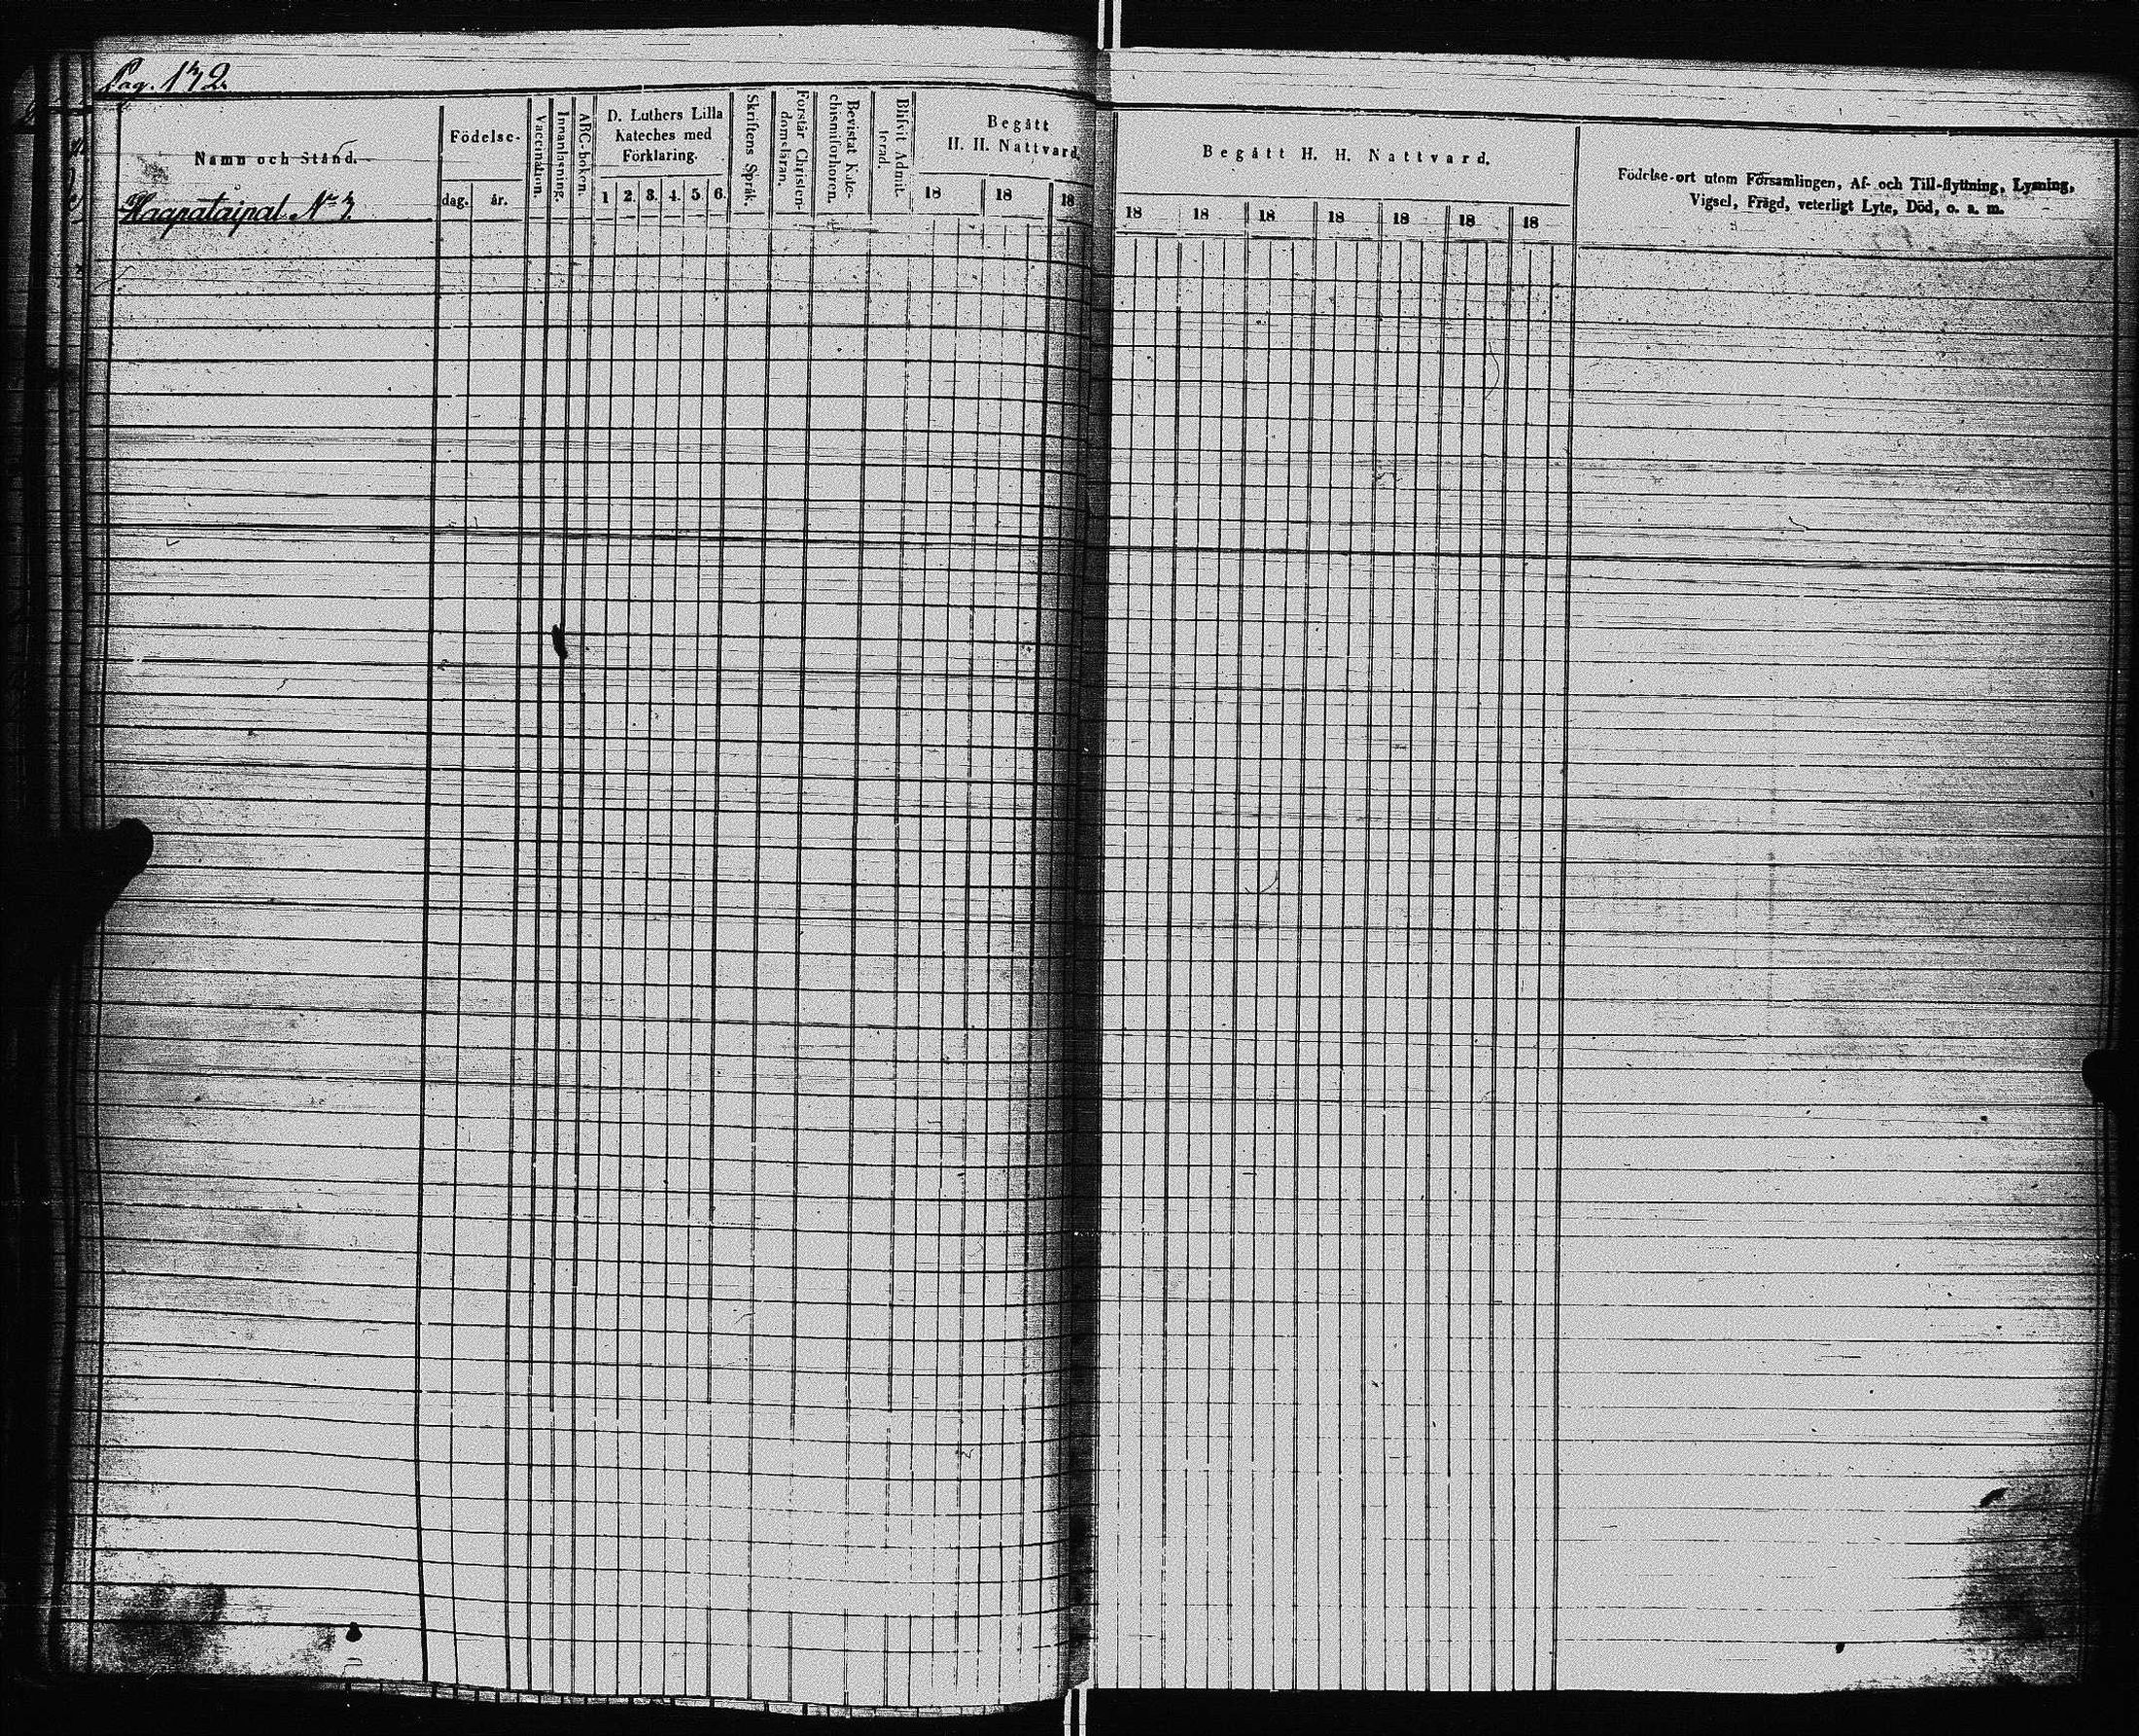 Pag. 172.
Namn och Stånd.
Haapataipal № 7.
Födelse-
dag.
år.
Vaccination.
Innanläsning.
ABC-boken.
D. Luthers Lilla
Kateches med
Förklaring.
1 2. 3. 4. 5 6.
Skriftens Språk.
Förstår Christen-
domsläran.
Bevistat Kate-
chismiförhören.
Blifvit Admit-
terad.
Begått
H. H. Nattvard.
18 18 18
Begått H. H. Nattvard.
18 18 18 18 18 18 18
Födelse-ort utom Församlingen, Af- och Till-flyttning, Lysning,
Vigsel, Frägd, veterligt Lyte, Död, o. s. m.